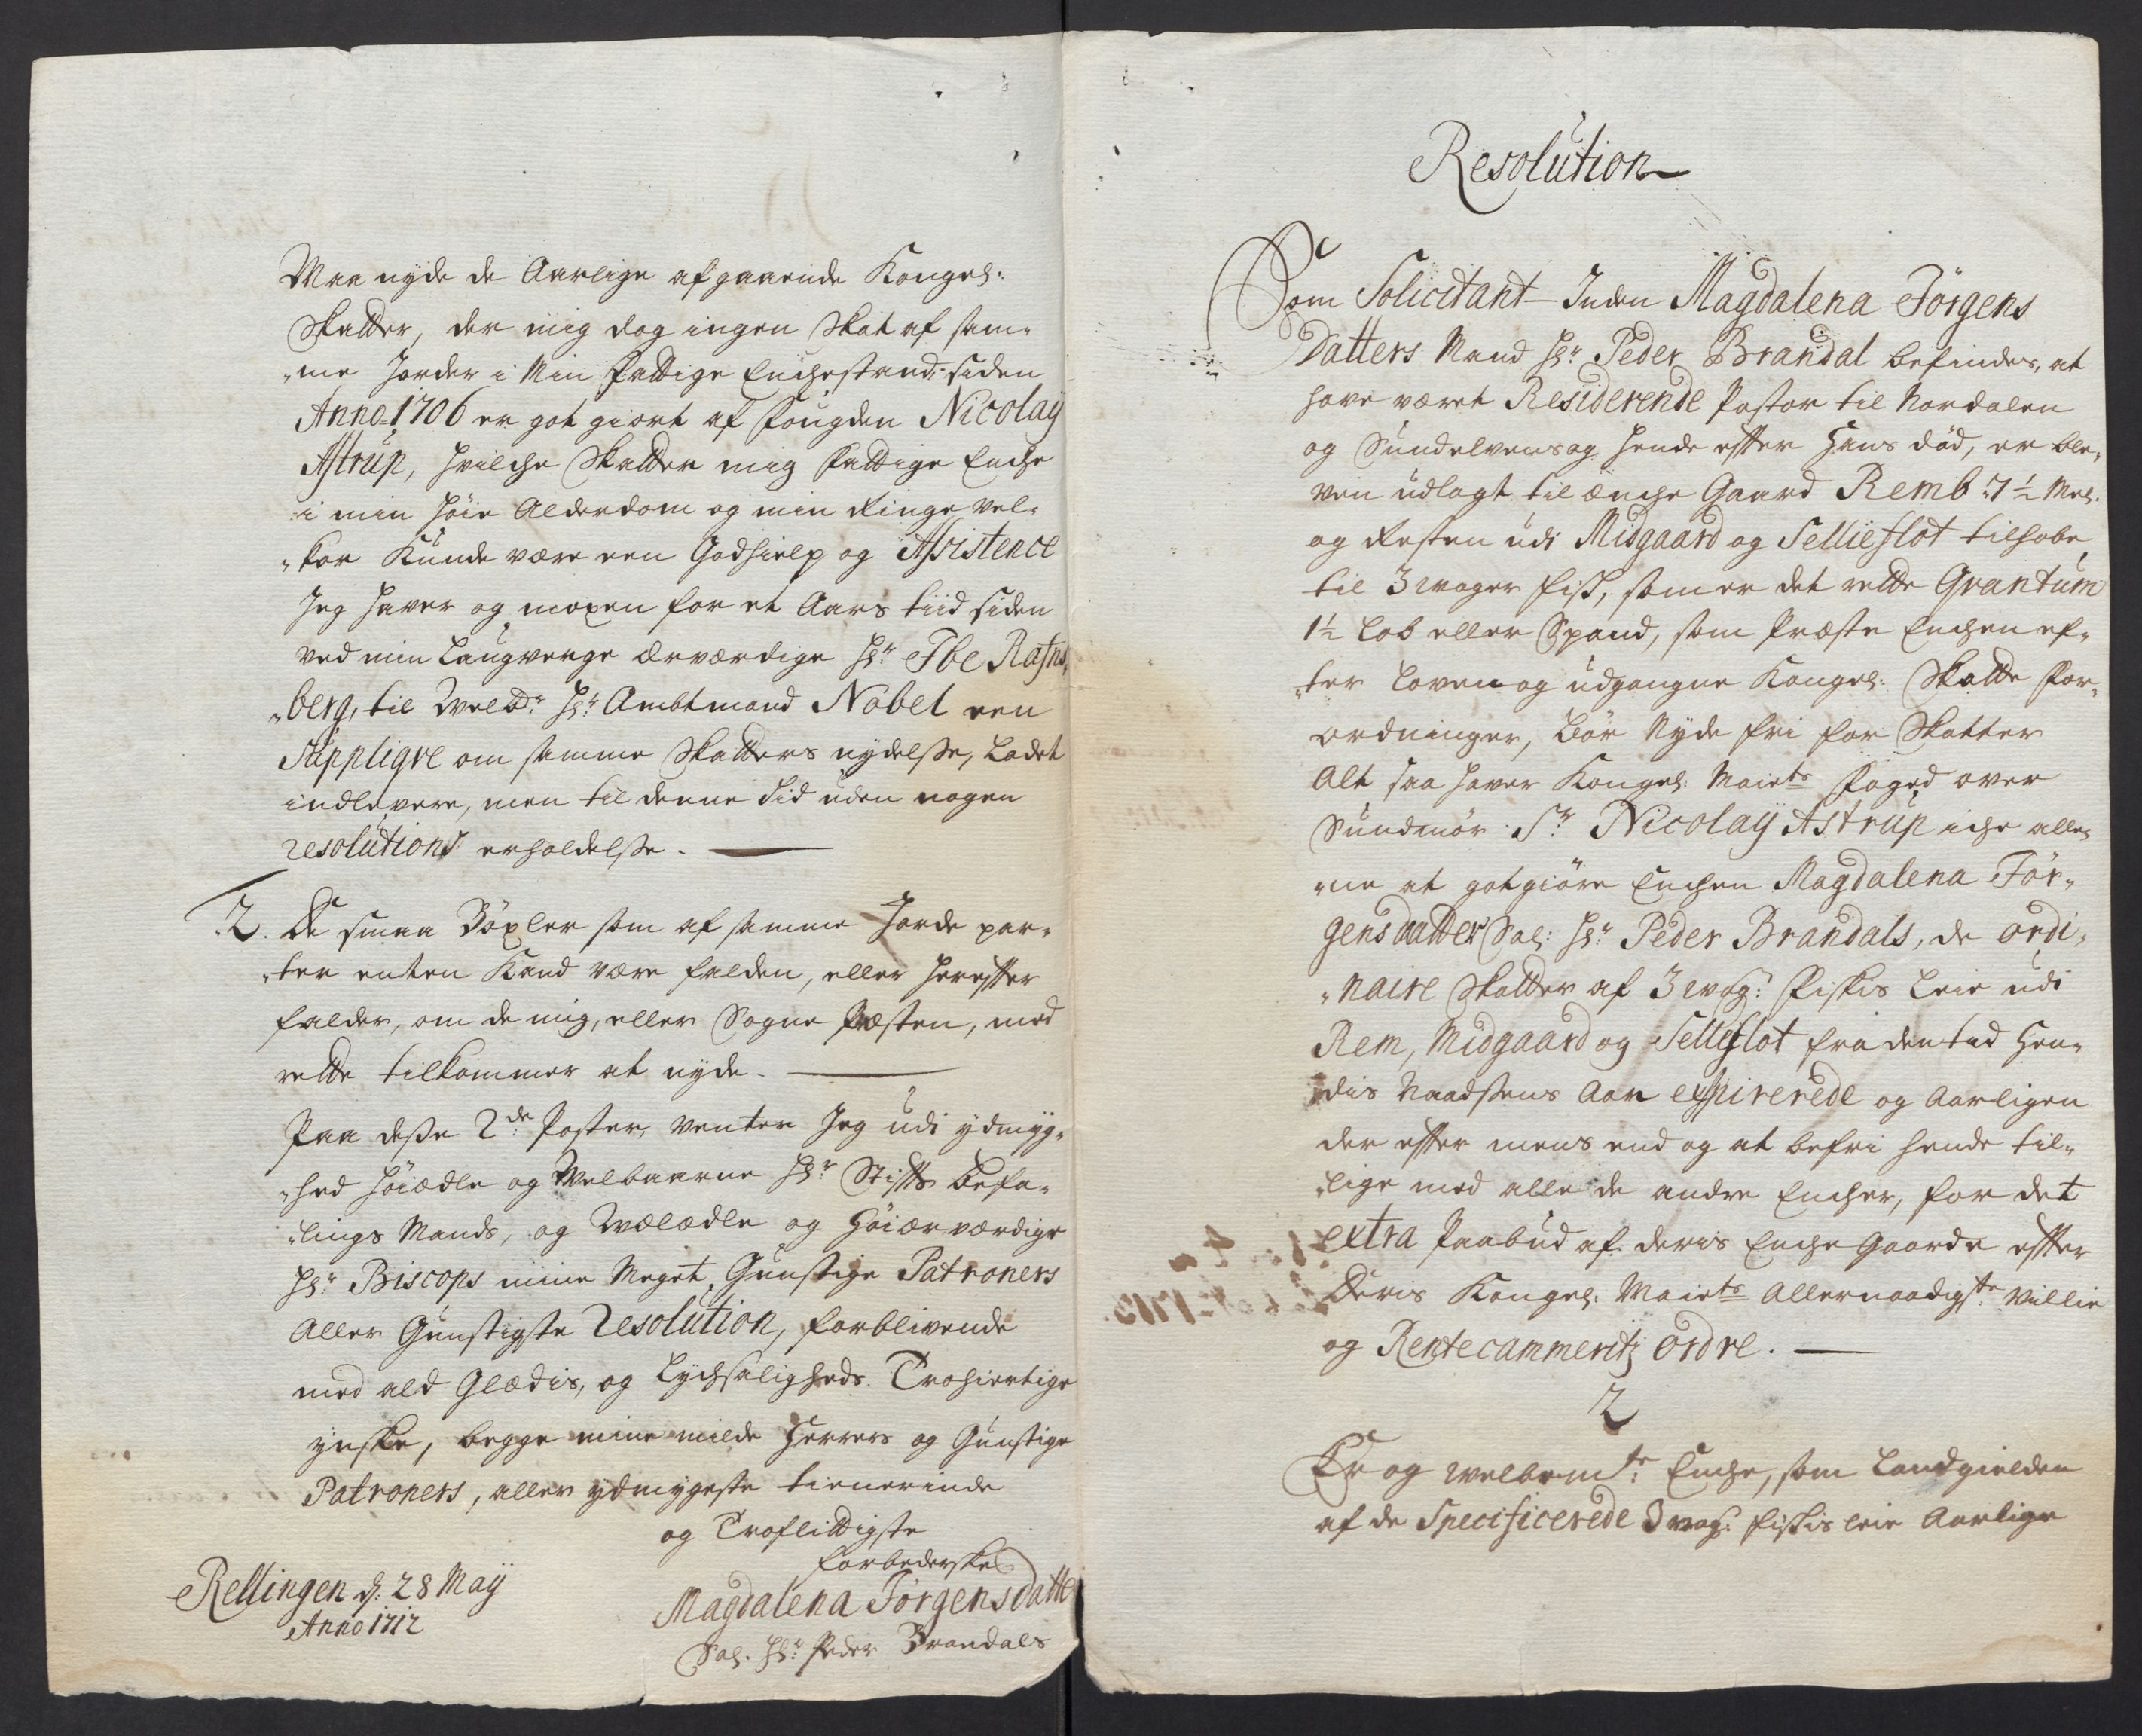 Maa nyde de Aarlige afgaaende Kongel:
Skatter, der mig dog ingen Skat af sam-
"me Jorder i Min fattige Enchestand, siden
Anno 1706 er got giort af fougden Nicolaÿ
Astrup, hvilche Skatter mig fattige Enche
i min höie Alderdom og min Ringe vel-
"kor Kunde være een Godhielp og Assistence
Jeg haver og moxen for et Aars tiid siden
ved min Laugverge Ærværdige Hr: Ibe Rafns-
"berg, til Welb: Hr: Ambtmand Nobel een
Supplique om samme Skatters nydelsse, Ladet
indlevere, men til denne Tid uden nogen
resolutions erholdelsse.
2. De smaa Böxler som af samme Jorde par-
"ter enten Kand være falden, eller herefter
falder, om de mig, eller Sogne Præsten, med
rette tilkommer at nyde.
Paa desse 2de: Poster, venter Jeg udi ydmyg-
"hed Höiædle og Welbaarne Hr: Stifts Befa-
"lings Mands, og Welædle og Höiærværdige
Hr: Biscops mine Meget Gunstige Patroners
Aller Gunstigste Resolution, forblivende
med ald Glædis, og Lychsaligheds Trohiertige
ynske, begge mine milde Herrers og Gunstige
Patroners, aller ydmygeste tienerinde
og Troflittigste
forbederske
Rellingen d: 28 Maÿ
Anno 1712
Magdalena Jörgensdatte
Sal. Hr: Peder Brandals
Resolution
Som Solicitant-Inden Magdalena Jörgens
Datters Mand Hr: Peder Brandal befindes, at
have været Residerende Pastor til Nordalen
og Sundelvens og hende efter Hans död, er ble-
ven udlagt til ænche Gaard Remb: 7½ Mel.
og Resten udi Midgaard og Sellieflot tilhobe
til 3 woger fisk, som er det rette Qvantum
1½ Lob eller Spand, som Præste Enchen ef-
"ter Loven og udgangne Kongel: Skatte For-
ordninger, Bör Nyde fri for Skatter
Alt saa haver Kongel: Maiets Foged over
Sundmör Sr: Nicolaÿ Astrup iche alle-
"ne at gotgiöre Enchen Magdalena Jör-
gensdatter Sal: Hr: Peder Brandals, de ordi-
"naire Skatter af 3 wog: Fiskis Leie udi
Rem, Midgaard og Sellieflot fra den tid Hen-
dis Naadsens Aar expirerede og Aarligen
der efter mens end og at befri hende til-
"lige med alle de andre Encher, for det
extra Paabud af deris Enche Gaarde efter
Deris Kongel: Maiets Allernaadigste villie
og Rentecammeritz ordre.
2
Er og welbemte: Enche, som Landgielden
af de Specificerede 3 wog: fiskis leie Aarlige